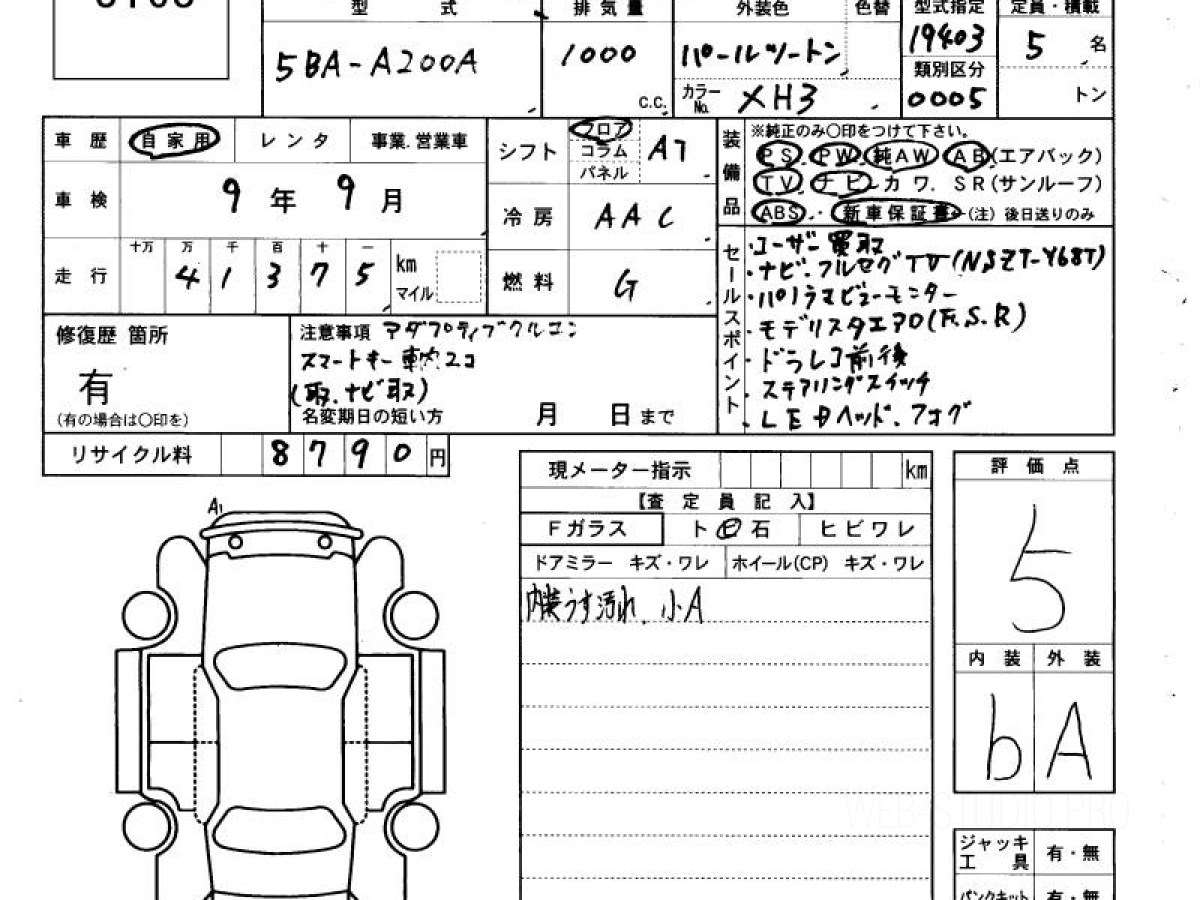 型 式 排気量 外装色 色替 型式指定 定員・積載
5BA-A200A 1000 パールツートン 19403 5 名
類別区分
C.C. カラーNo. XH3 0005 トン
車歴 自家用 レンタ 事業.営業車 シフト フロア コラム パネル AT
車検 9年 9月 冷房 AAC
走行 十万 万 千 百 十 一 41375 km マイル 燃料 G
装備品 ※純正のみ〇印をつけて下さい。
PS. PW. 純AW. AB(エアバック)
TV. ナビ. カワ. SR(サンルーフ)
ABS. 新車保証書(注)後日送りのみ
セールスポイント
・ユーザー買取
・ナビ.フルセグTV(NSZT-Y68T)
・パノラマビューモニター
・モデリスタエアロ(F.S.R)
・ドラレコ前後
・ステアリングスイッチ
・LEDヘッド.フォグ
修復歴 箇所
有
(有の場合は〇印を)
注意事項 アダプティブクルコン
スマートキー車内2コ
(取.ナビ取)
名変期日の短い方 月 日まで
リサイクル料 8790円
現メーター指示 km
【査定員記入】
Fガラス ト ビ 石 ヒビワレ
ドアミラー キズ・ワレ ホイール(CP) キズ・ワレ
内装うす汚れ. 小A
A1
評価点
5
内装 外装
b A
ジャッキ工具 有・無
パンクキット 有・無
WEB-STUDIO.PRO